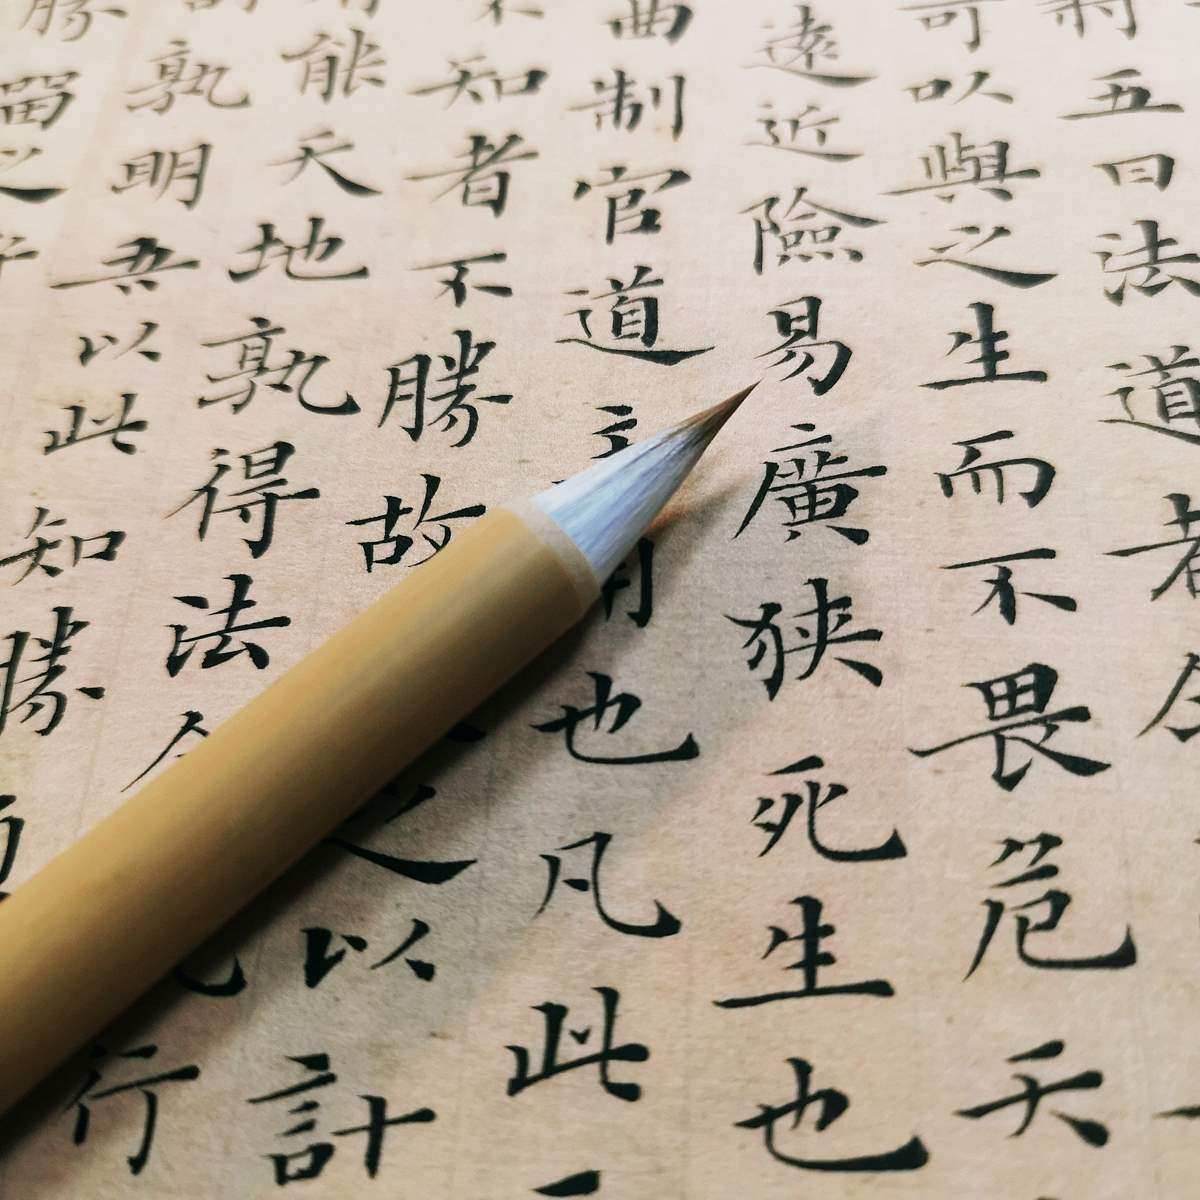 將五曰法道者令
可以與之生而不畏危天
遠近險易廣狹死生也
曲制官道主用也凡此
不知者不勝故之以計
能天地孰得法令行
孰明吾以此知勝
勝留之